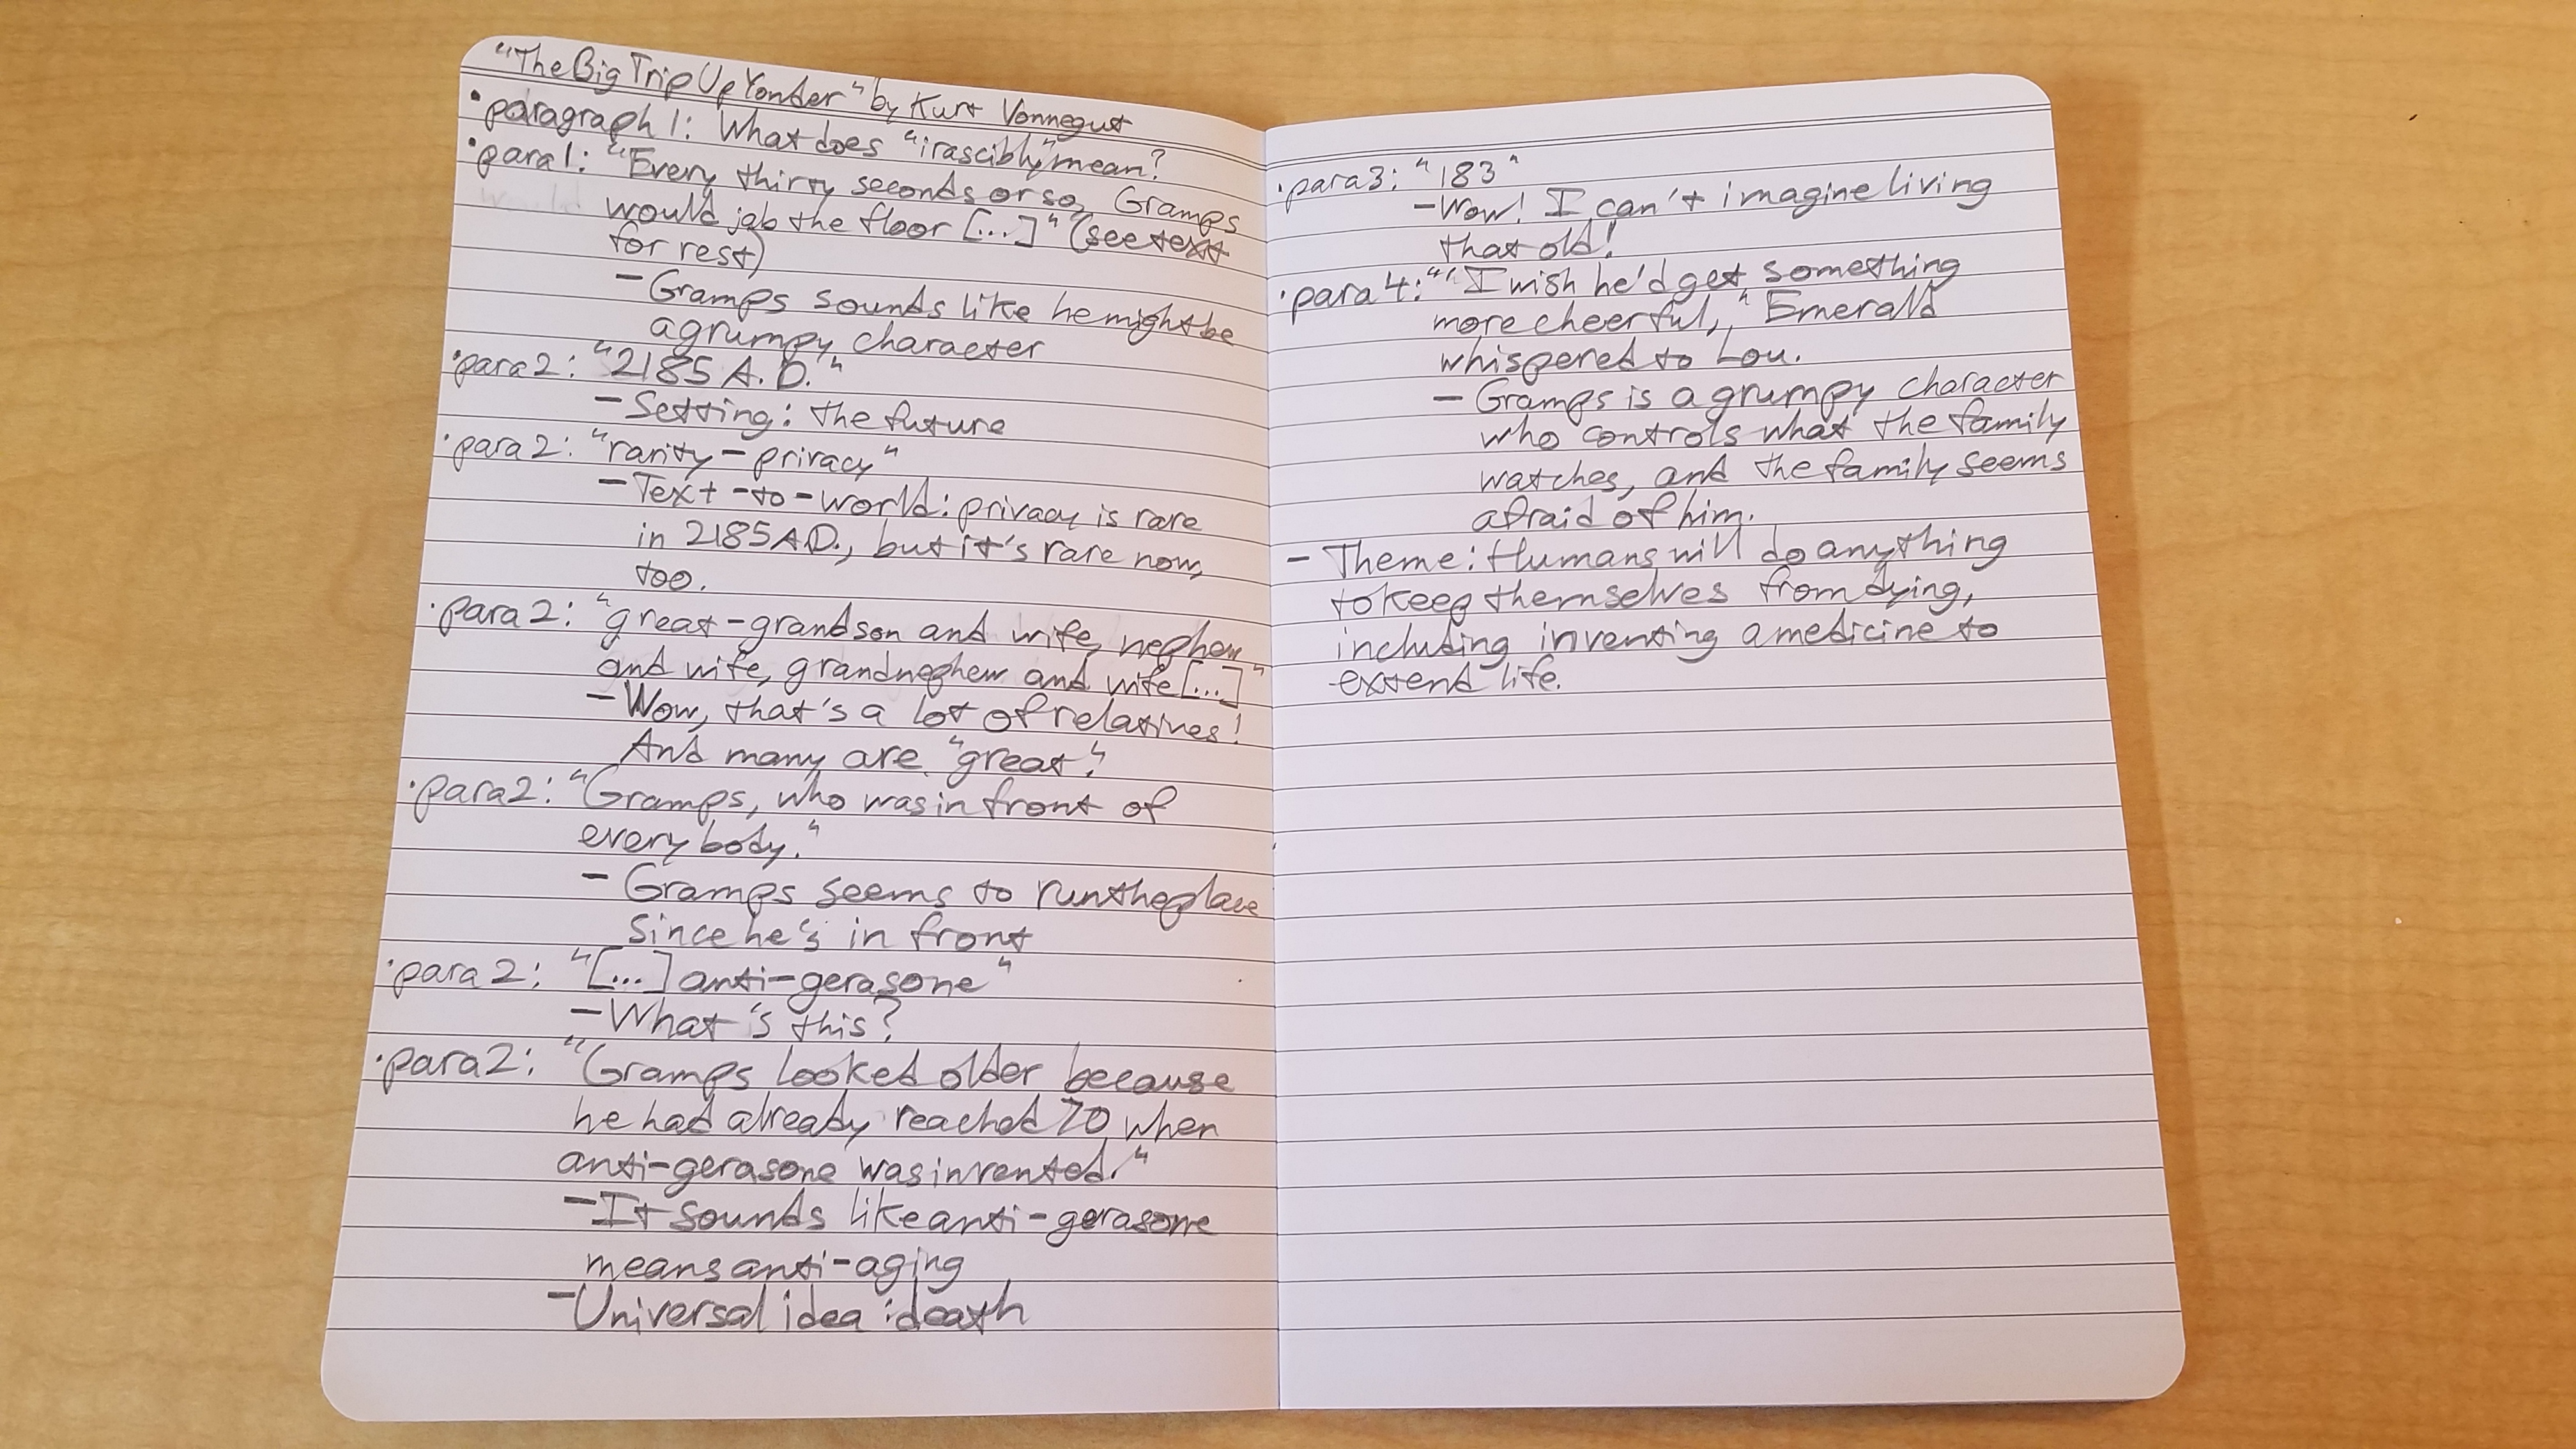 "The Big Trip Up Yonder" by Kurt Vonnegut
• paragraph 1: What does "irascibly" mean?
• para 1: "Every thirty seconds or so, Gramps
would jab the floor [...]" (see text
for rest)
- Gramps sounds like he might be
a grumpy character
• para 2: "2185 A.D."
- Setting: the future
• para 2: "rarity-privacy"
- Text-to-world: privacy is rare
in 2185 A.D., but it's rare now,
too.
• para 2: "great-grandson and wife, nephew
and wife, grandnephew and wife [...]"
- Wow, that's a lot of relatives!
And many are "great".
• para 2: "Gramps, who was in front of
everybody."
- Gramps seems to run the place
since he's in front
• para 2: "[...] anti-gerasone"
- What's this?
• para 2: "Gramps looked older because
he had already reached 70 when
anti-gerasone was invented."
- It sounds like anti-gerasone
means anti-aging
- Universal idea: death
• para 3: "183"
- Wow! I can't imagine living
that old!
• para 4: "'I wish he'd get something
more cheerful,' Emerald
whispered to Lou.
- Gramps is a grumpy character
who controls what the family
watches, and the family seems
afraid of him.
- Theme: Humans will do anything
to keep themselves from dying,
including inventing a medicine to
extend life.